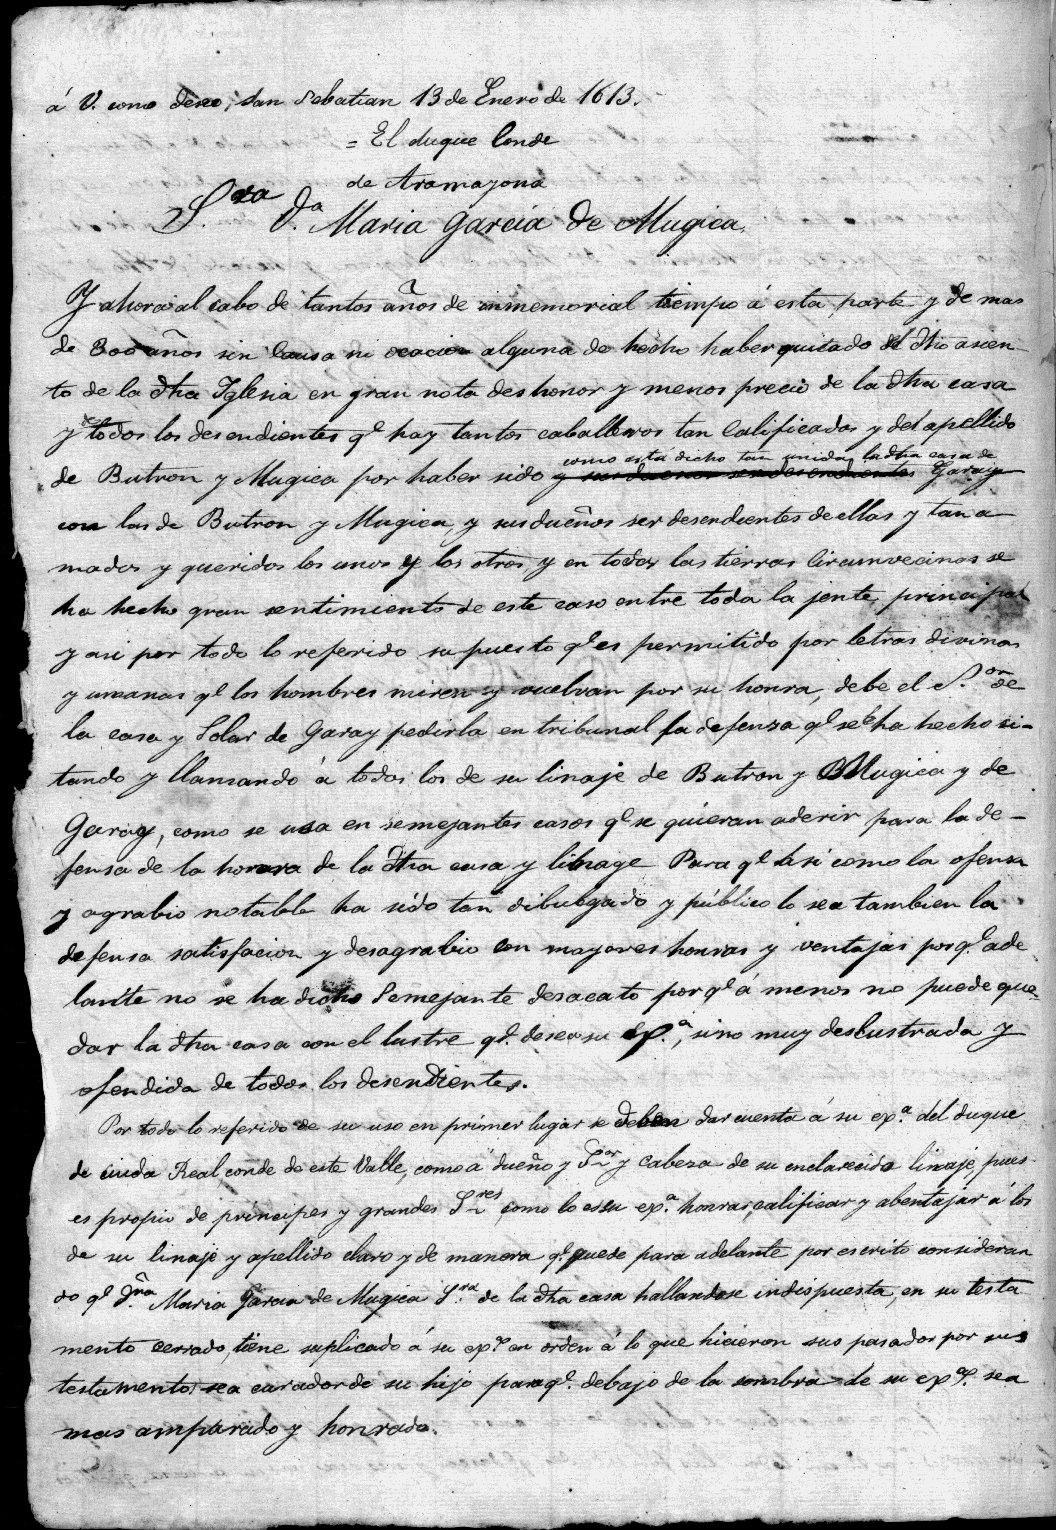 á V. como deseo, San Sebatian 13 de Enero de 1613.
= El duque Conde
de Aramayona
S.ra D.a Maria Garcia de Mugica,
Y ahora al cabo de tantos años de inmemorial tiempo á esta parte y de mas
de 300 años sin Causa ni ocacion alguna de hecho haber quitado el dho asien
to de la dha Iglesia en gran nota deshonor y menos precio de la dha casa
y de todos los desendientes q.e hay tantos caballeros tan Calificados y del apellido
como esta dicho tan unidas la dha casa de
de Butron y Mugica por haber sido y sus dueños ser desendientes Garay
con las de Butron y Mugica, y sus dueños ser desendientes de ellas y tan a
mados y queridos los unos y los otros y en todas las tierras Circunvecinas se
ha hecho gran sentimiento de este caso entre toda la jente principal
y asi por todo lo referido supuesto q.e es permitido por letras divinas
y umanas q.e los hombres miren y vuelvan por su honra, debe el S.or de
la casa y Solar de Garay pedirla en tribunal la defenza q.e se le ha hecho si-
tando y llamando á todos los de su linaje de Butron y Mugica y de
Garay, como se usa en semejantes casos q.e se quieran aderir para la de-
fensa de la honra de la dha casa y linage Para q.e asi como la ofensa
y agrabio notable ha sido tan dibulgado y público lo sea tambien la
defensa satisfacion y desagrabio con mayores honras y ventajas pos q.e ade
lante no se ha dicho Semejante desacato por q.e á menos no puede que-
dar la dha casa con el lustre q.e desea su ex.a, sino muy deslustrada y
ofendida de todos los desendientes.
Por todo lo referido de su uso en primer lugar se deben dar cuenta á su ex.a del duque
de ciuda Real conde de este Valle, como a dueño y S.or y Cabeza de su enclarecido linaje, pues
es propio de principes y grandes S.res como lo es su ex.a honrar, calificar y abentajar á los
de su linaje y apellido claro y de manera q.e quede para adelante por escrito consideran
do q.e D.ña Maria Garcia de Mugica S.ra de la dha casa hallandose indispuesta, en su testa
mento cerrado, tiene suplicado á su ex.a en orden á lo que hicieron sus pasados por sus
testamentos sea curador de su hijo para q.e debajo de la sombra de su ex.a sea
mas amparado y honrado.